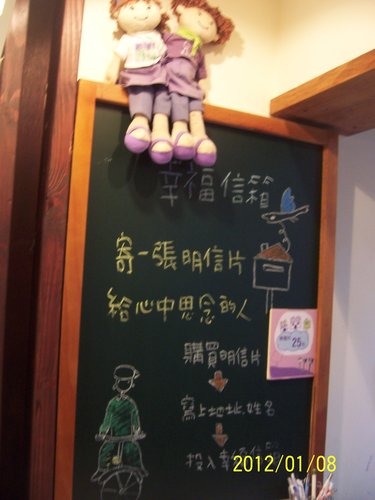 幸福信箱
寄一張明信片
給心中思念的人
購買明信片
寫上地址.姓名
投入幸福信箱
25
2012/01/08